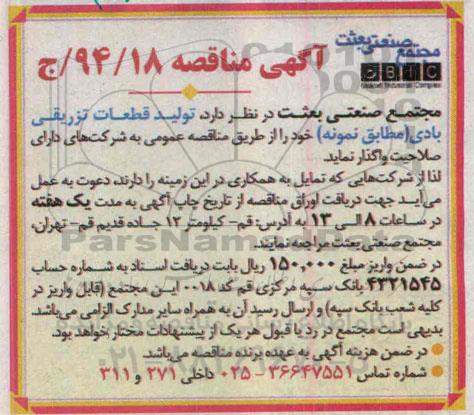 مجتمع صنعتی بعثت
BIC
Beasat Industrial Complex
آگهی مناقصه ۹۴/۱۸/ج
مجتمع صنعتی بعثت در نظر دارد، تولید قطعات تزریقی
بادی(مطابق نمونه) خود را از طریق مناقصه عمومی به شرکت‌های دارای
صلاحیت واگذار نماید.
لذا از شرکت‌هایی که تمایل به همکاری در این زمینه را دارند، دعوت به عمل
می‌آید جهت دریافت اوراق مناقصه از تاریخ چاپ آگهی به مدت یک هفته
در ساعات ۸ الی ۱۳ به آدرس: قم- کیلومتر ۱۲ جاده قدیم قم- تهران،
مجتمع صنعتی بعثت مراجعه نمایند.
در ضمن واریز مبلغ ۱۵۰,۰۰۰ ریال بابت دریافت اسناد به شماره حساب
۴۳۲۱۵۴۵ بانک سپه مرکزی قم کد ۰۰۱۸ این مجتمع (قابل واریز در
کلیه شعب بانک سپه) و ارسال رسید آن به همراه سایر مدارک الزامی می‌باشد.
بدیهی است مجتمع در رد یا قبول هر یک از پیشنهادات مختار خواهد بود.
در ضمن هزینه آگهی به عهده برنده مناقصه می‌باشد.
شماره تماس ۳۶۶۴۷۵۵۱ - ۰۲۵ داخلی ۲۷۱ و ۳۱۱
ParsNamadData